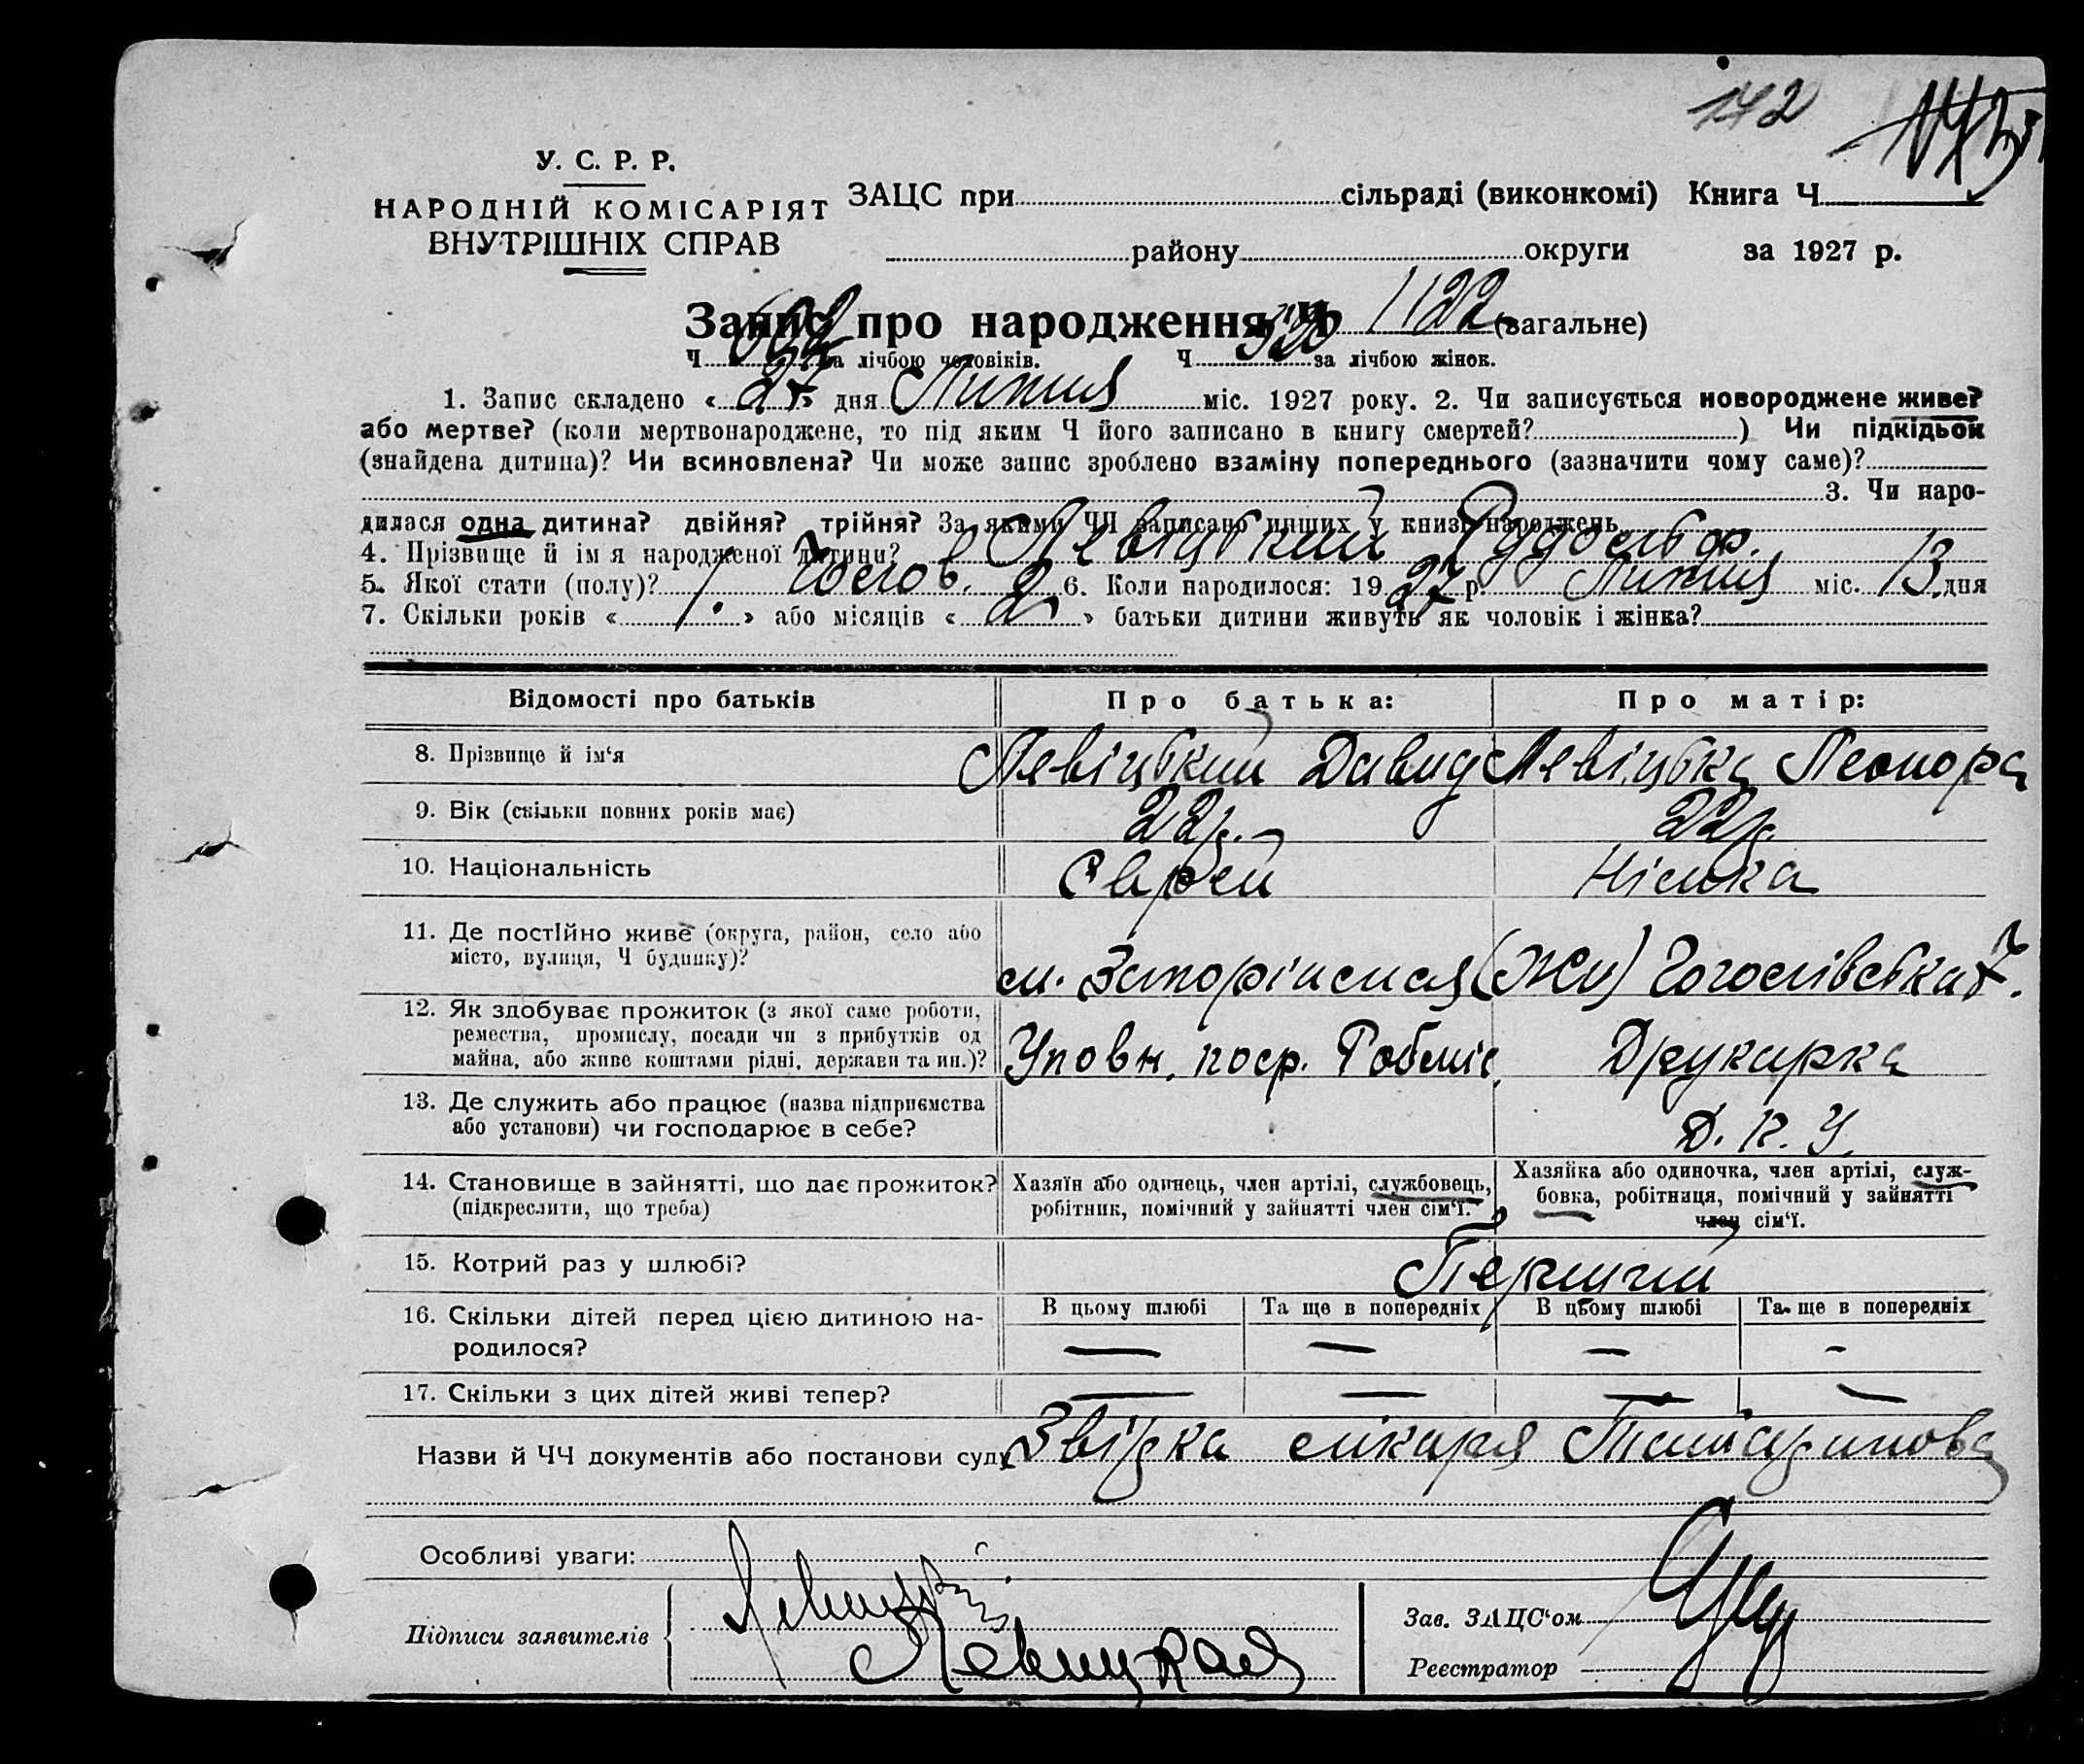 142
У. С. Р. Р.
НАРОДНІЙ КОМІСАРІЯТ
ВНУТРІШНІХ СПРАВ
ЗАЦС при сільраді (виконкомі) Книга Ч
району округи за 1927 р.
Запис про народження Ч 1122 (загальне)
Ч 602 за лічбою чоловіків. Ч 520 за лічбою жінок.
1. Запис складено « 27 » дня Липня міс. 1927 року. 2. Чи записується новороджене живе?
або мертве? (коли мертвонароджене, то під яким Ч його записано в книгу смертей? ) Чи підкідьок
(знайдена дитина)? Чи всиновлена? Чи може запис зроблено взаміну попереднього (зазначити чому саме)?
3. Чи наро-
дилася одна дитина? двійня? трійня? За якими ЧЧ записано инших у книзі народжень
4. Прізвище й ім я народженої дитини? Левіцький Рудольф.
5. Якої стати (полу)? Чолов. 6. Коли народилося: 1927 р. Липня міс. 13 дня
7. Скільки років « 1 » або місяців « 2 » батьки дитини живуть як чоловік і жінка?
Відомості про батьків Про батька: Про матір:
8. Прізвище й ім‘я Левіцький Давид Левіцька Леонора
9. Вік (скільки повних років має) 22 р. 22 р.
10. Національність Єврей Німка
11. Де постійно живе (округа, район, село або
місто, вулиця, Ч будинку)? м. Запоріжжя Гоголівська 7.
12. Як здобуває прожиток (з якої саме роботи,
ремества, промислу, посади чи з прибутків од
майна, або живе коштами рідні, держави та ин.)? Уповн. поср. Робміс. Друкарка
13. Де служить або працює (назва підприємства
або установи) чи господарює в себе? Д. П. У.
14. Становище в зайнятті, що дає прожиток?
(підкреслити, що треба)
Хазяїн або одинець, член артілі, службовець,
робітник, помічний у зайнятті член сім‘ї.
Хазяйка або одиночка, член артілі, служ-
бовка, робітниця, помічний у зайнятті
член сім‘ї.
15. Котрий раз у шлюбі? Перший
16. Скільки дітей перед цією дитиною на-
родилося?
В цьому шлюбі Та ще в попередніх В цьому шлюбі Та ще в попередніх
— — — -
17. Скільки з цих дітей живі тепер? — — — —
Назви й ЧЧ документів або постанови суду Звірка лікаря
Особливі уваги:
Підписи заявителів Левицкий
Левицкая
Зав. ЗАЦС‘ом
Реєстратор